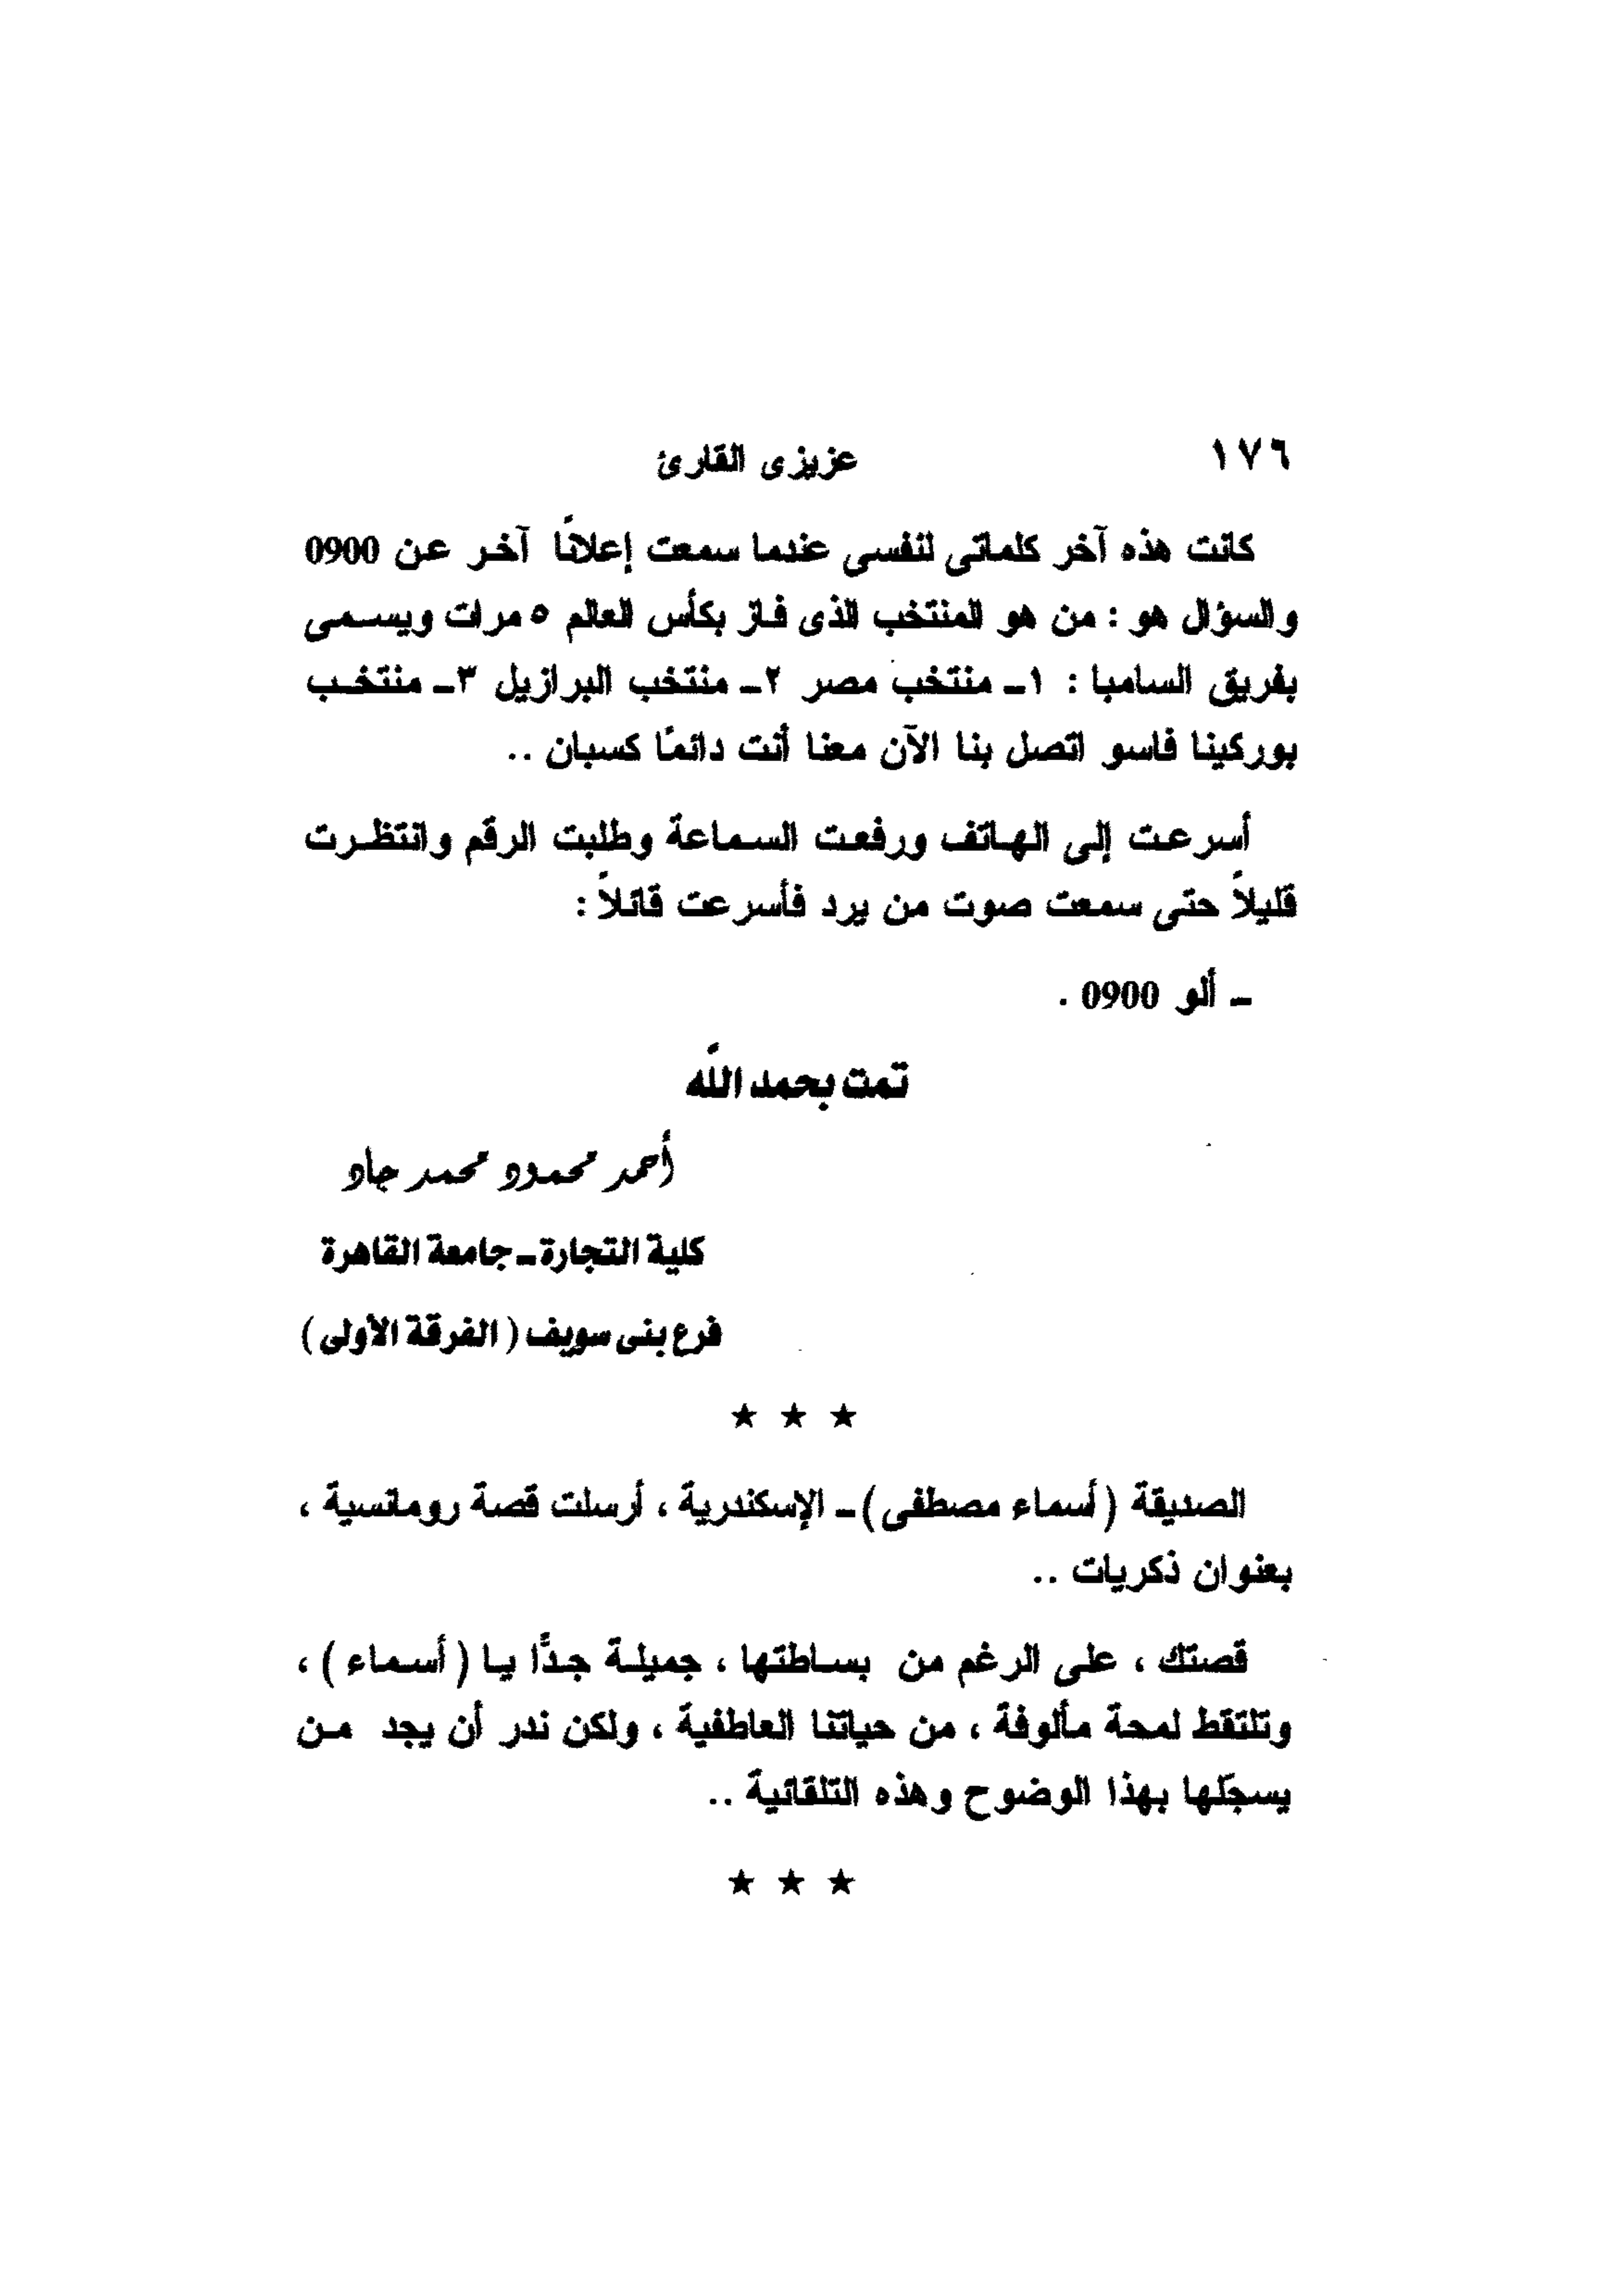 ١٧٦ عزيزى القارئ
كانت هذه آخر كلماتى لنفسى عندما سمعت إعلانًا آخر عن 0900
والسؤال هو : من هو المنتخب الذى فاز بكأس العالم ٥ مرات ويسمى
بفريق السامبا : ١ـ منتخب مصر ٢ـ منتخب البرازيل ٣ـ منتخب
بوركينا فاسو اتصل بنا الآن معنا أنت دائمًا كسبان ..
أسرعت إلى الهاتف ورفعت السماعة وطلبت الرقم وانتظرت
قليلاً حتى سمعت صوت من يرد فأسرعت قائلاً :
ـ ألو 0900 .
تمت بحمد الله
أحمد محمود محمد جاد
كلية التجارة ـ جامعة القاهرة
فرع بنى سويف ( الفرقة الأولى )
★ ★ ★
الصديقة ( أسماء مصطفى ) ـ الإسكندرية ، أرسلت قصة رومانسية ،
بعنوان ذكريات ..
قصتك ، على الرغم من بساطتها ، جميلة جدًّا يا ( أسماء ) ،
وتلتقط لمحة مألوفة ، من حياتنا العاطفية ، ولكن ندر أن يجد من
يسجّلها بهذا الوضوح وهذه التلقائية ..
★ ★ ★